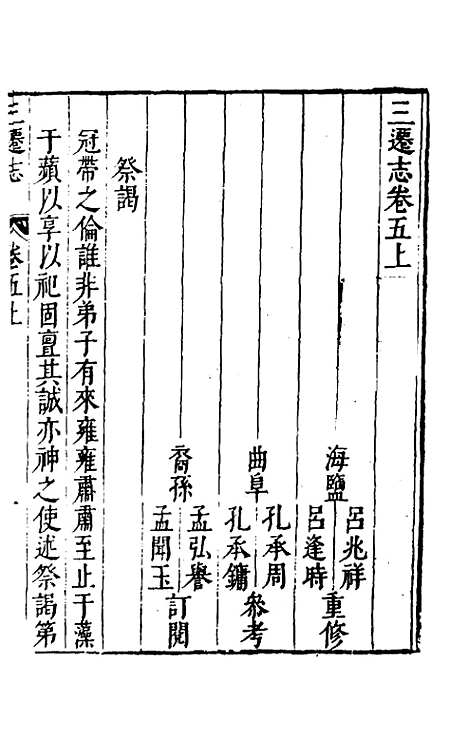 三遷志卷五上
海鹽
呂兆祥
呂逢時
重修
曲阜
孔承周
孔承鏞
參考
裔孫
孟弘譽
孟聞玉
訂閱
祭謁
冠帶之倫誰非弟子有來雍雍肅肅至止于藻
于蘋以享以祀固亶其誠亦神之使述祭謁第
三遷志
卷五上